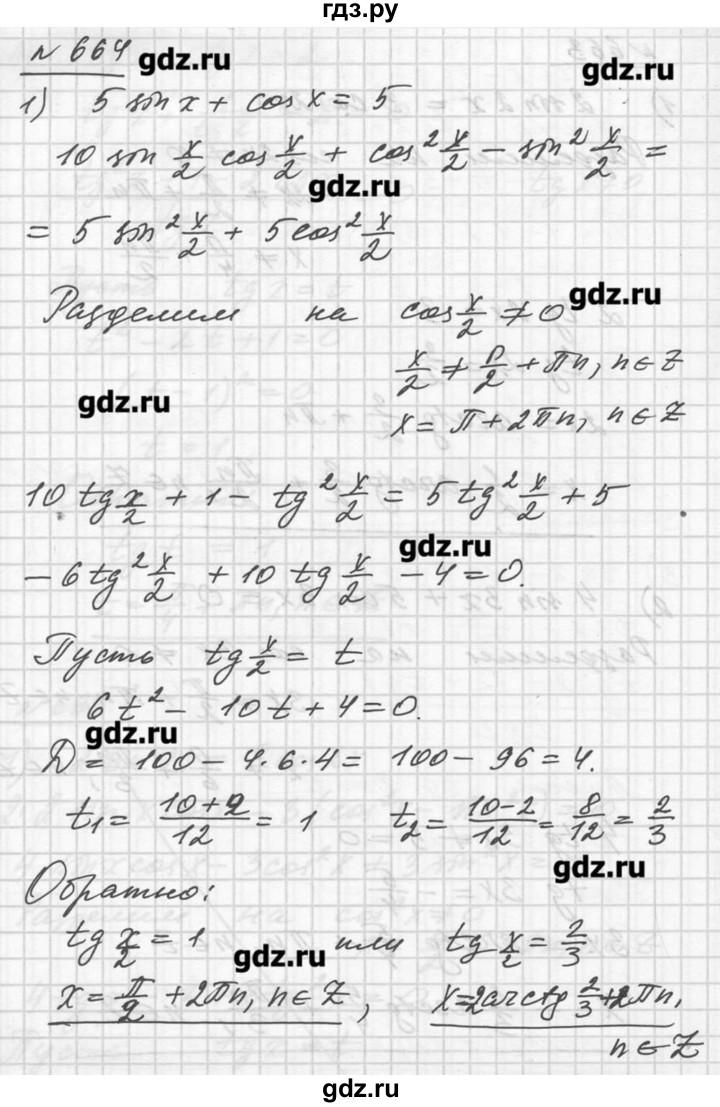 гдз.ру
№ 664 gdz.ru
gdz.ru
1) 5 sin x + cos x = 5
10 sin x/2 cos x/2 + cos² x/2 − sin² x/2 =
gdz.ru
= 5 sin² x/2 + 5 cos² x/2
gdz.ru
Разделим на cos x/2 ≠ 0
x/2 ≠ π/2 + πn, n ∈ Z
gdz.ru
x = π + 2πn, n ∈ Z
10 tg x/2 + 1 − tg² x/2 = 5 tg² x/2 + 5
gdz.ru
− 6 tg² x/2 + 10 tg x/2 − 4 = 0.
Пусть tg x/2 = t
6t² − 10t + 4 = 0.
gdz.ru
D = 100 − 4·6·4 = 100 − 96 = 4.
t₁ = (10+2)/12 = 1 t₂ = (10−2)/12 = 8/12 = 2/3
gdz.ru
Обратно:
tg x/2 = 1 или tg x/2 = 2/3
gdz.ru
x = π/2 + 2πn, n ∈ Z, x = 2arctg 2/3 + 2πn,
n ∈ Z
gdz.ru